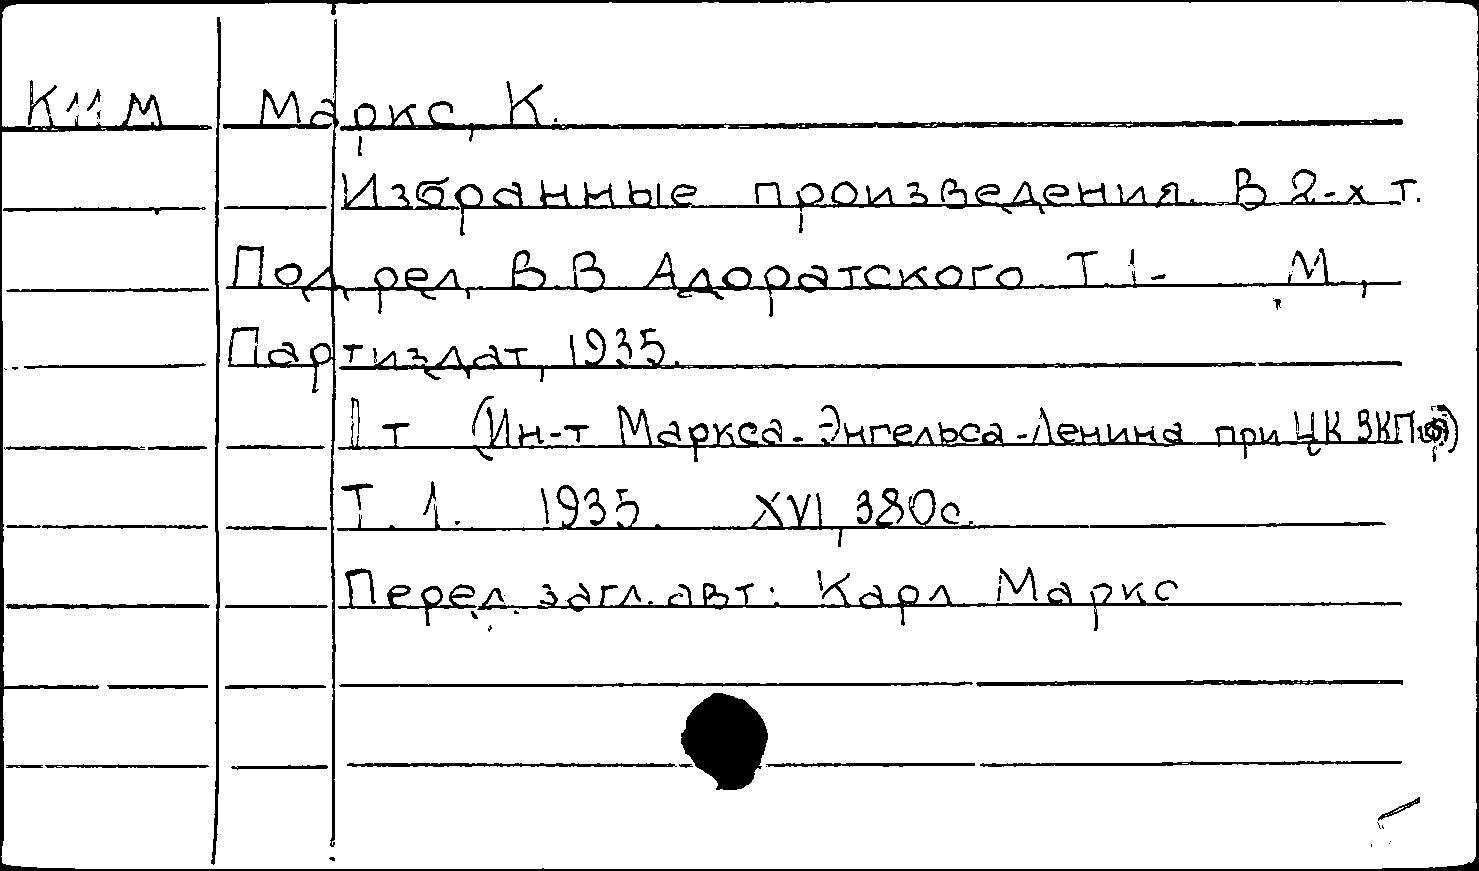 К11М Маркс, К.
Избранные произведения. В 2-х т.
Под ред. В.В Адоратского Т 1- М.,
Партиздат, 1935.
т (Ин-т Маркса-Энгельса-Ленина при ЦК ВКП(б))
Т. 1. 1935. XVI, 380с.
Перед. загл. авт: Карл Маркс